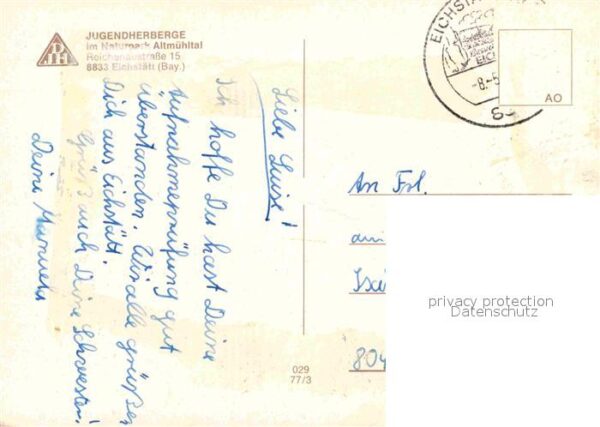 JUGENDHERBERGE
im Naturpark Altmühltal
Reichenaustraße 15
8833 Eichstätt (Bay.)
DJH
EICHSTÄ
EIC
-8.-5
AO
Liebe Luise!
Ich hoffe Du hast Deine
Aufnahmeprüfung gut
überstanden. Wir alle grüßen
Dich aus Eichstätt.
Grüß auch Deine Schwestern!
Deine Manuela
An Frl.
804
029
77/3
privacy protection
Datenschutz